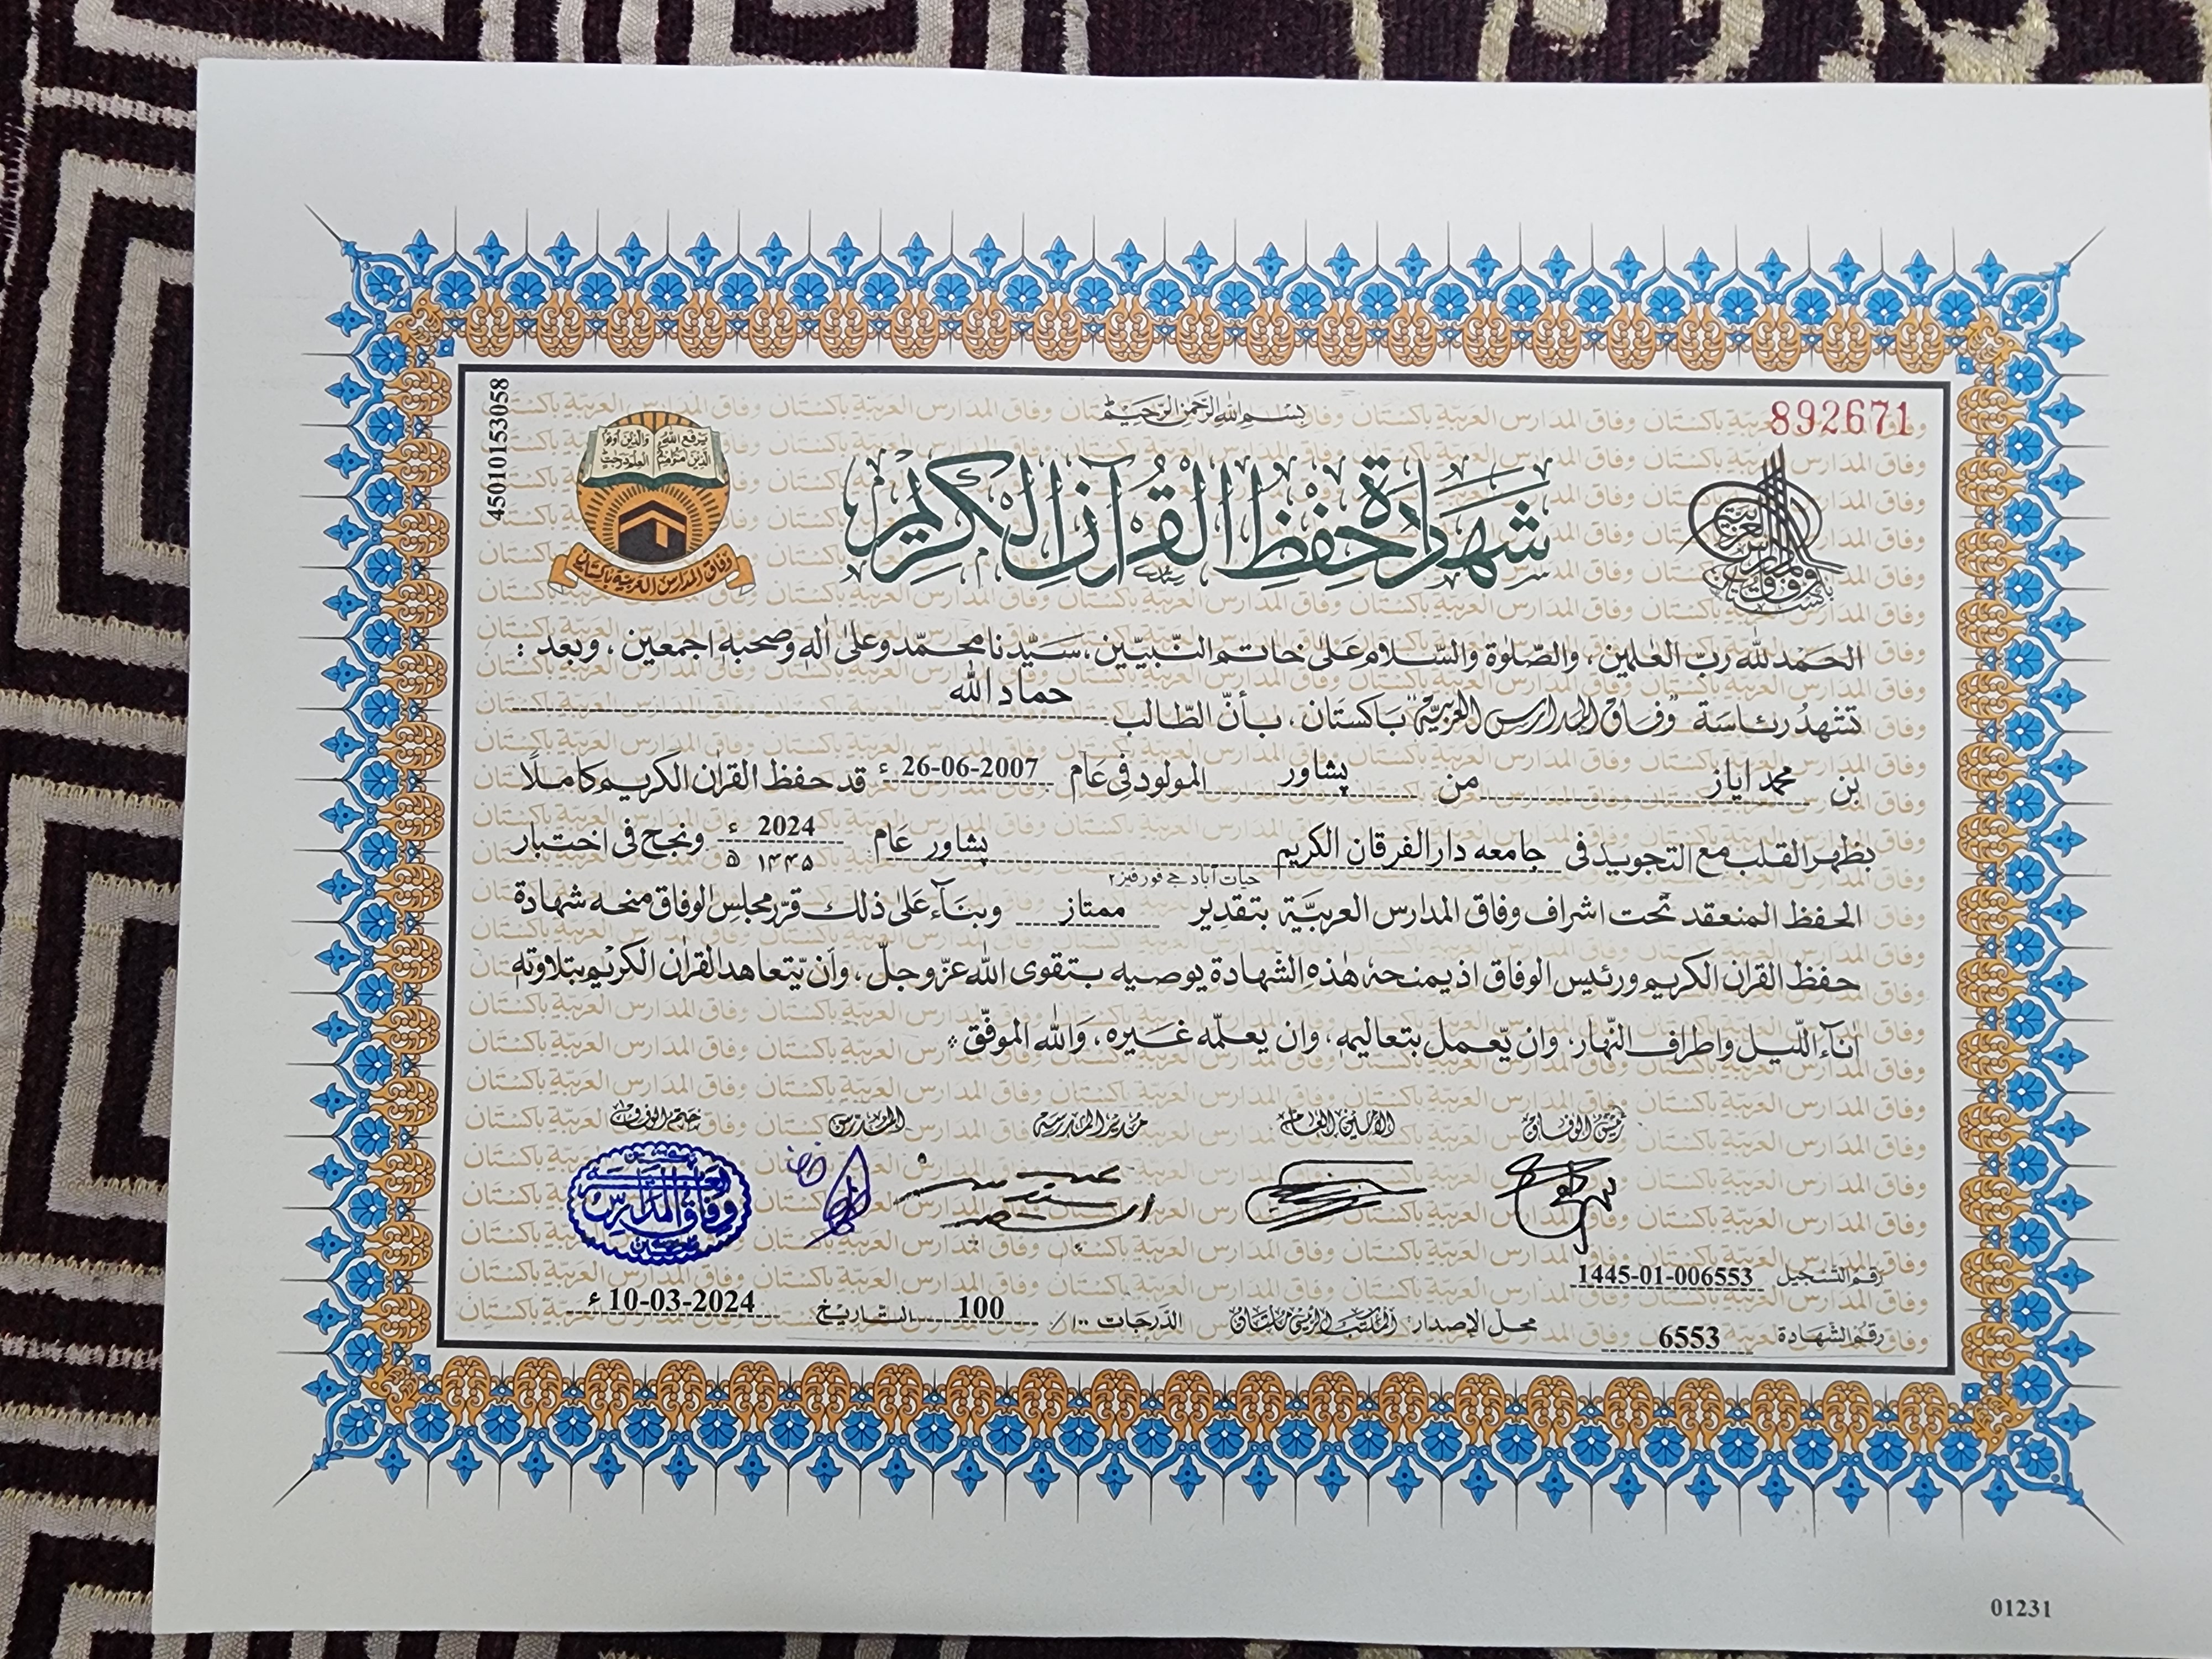 بسم الله الرحمن الرحيم
892671
4501010153058
يرفع الله الذين امنوا منكم والذين اوتوا العلم درجت
وفاق المدارس العربية باكستان
شهادة حفظ القرآن الكريم
الحمد لله ربّ العٰلمين، والصّلوٰة والسّلام علىٰ خاتم النّبيّين، سيّدنا محمّد وعلىٰ اٰلهٖ وصحبهٖ اجمعين، وبعد:
تشهد رئاسة "وفاق المدارس العربيّة" باكستان، بأنّ الطّالب حماد الله
بن محمد ایاز من پشاور المولود فی عام 26-06-2007 ء قد حفظ القراٰن الكريم كاملًا
بظهر القلب مع التجويد فی جامعه دار الفرقان الکریم پشاور عام 2024 ء ۱۴۴۵ ھ ونجح فی اختبار
حیات آباد جے فور فیز ۲
الحفظ المنعقد تحت اشراف وفاق المدارس العربيّة بتقدير ممتاز وبنآء علىٰ ذلك قرّر مجلس الوفاق منحه شهادة
حفظ القراٰن الكريم ورئيس الوفاق اذ يمنحهٗ هٰذه الشهادة يوصيه بتقوى الله عزّوجلّ، وأن يّتعاهد القراٰن الكريم بتلاوتهٖ
اٰنآء اللّيل واطراف النّهار، وان يّعمل بتعاليمهٖ، وان يعلّمه غيره، والله الموفّق
رئيس الوفاق الأمين العام مدير المدرسة المدرس ختم الوفاق
وفاق المدارس
رقم التسجيل 1445-01-006553
رقم الشهادة 6553 محل الإصدار: المكتب الرئيسي ملتان الدّرجات ۱۰۰/ 100 التّاريخ 10-03-2024 ء
01231